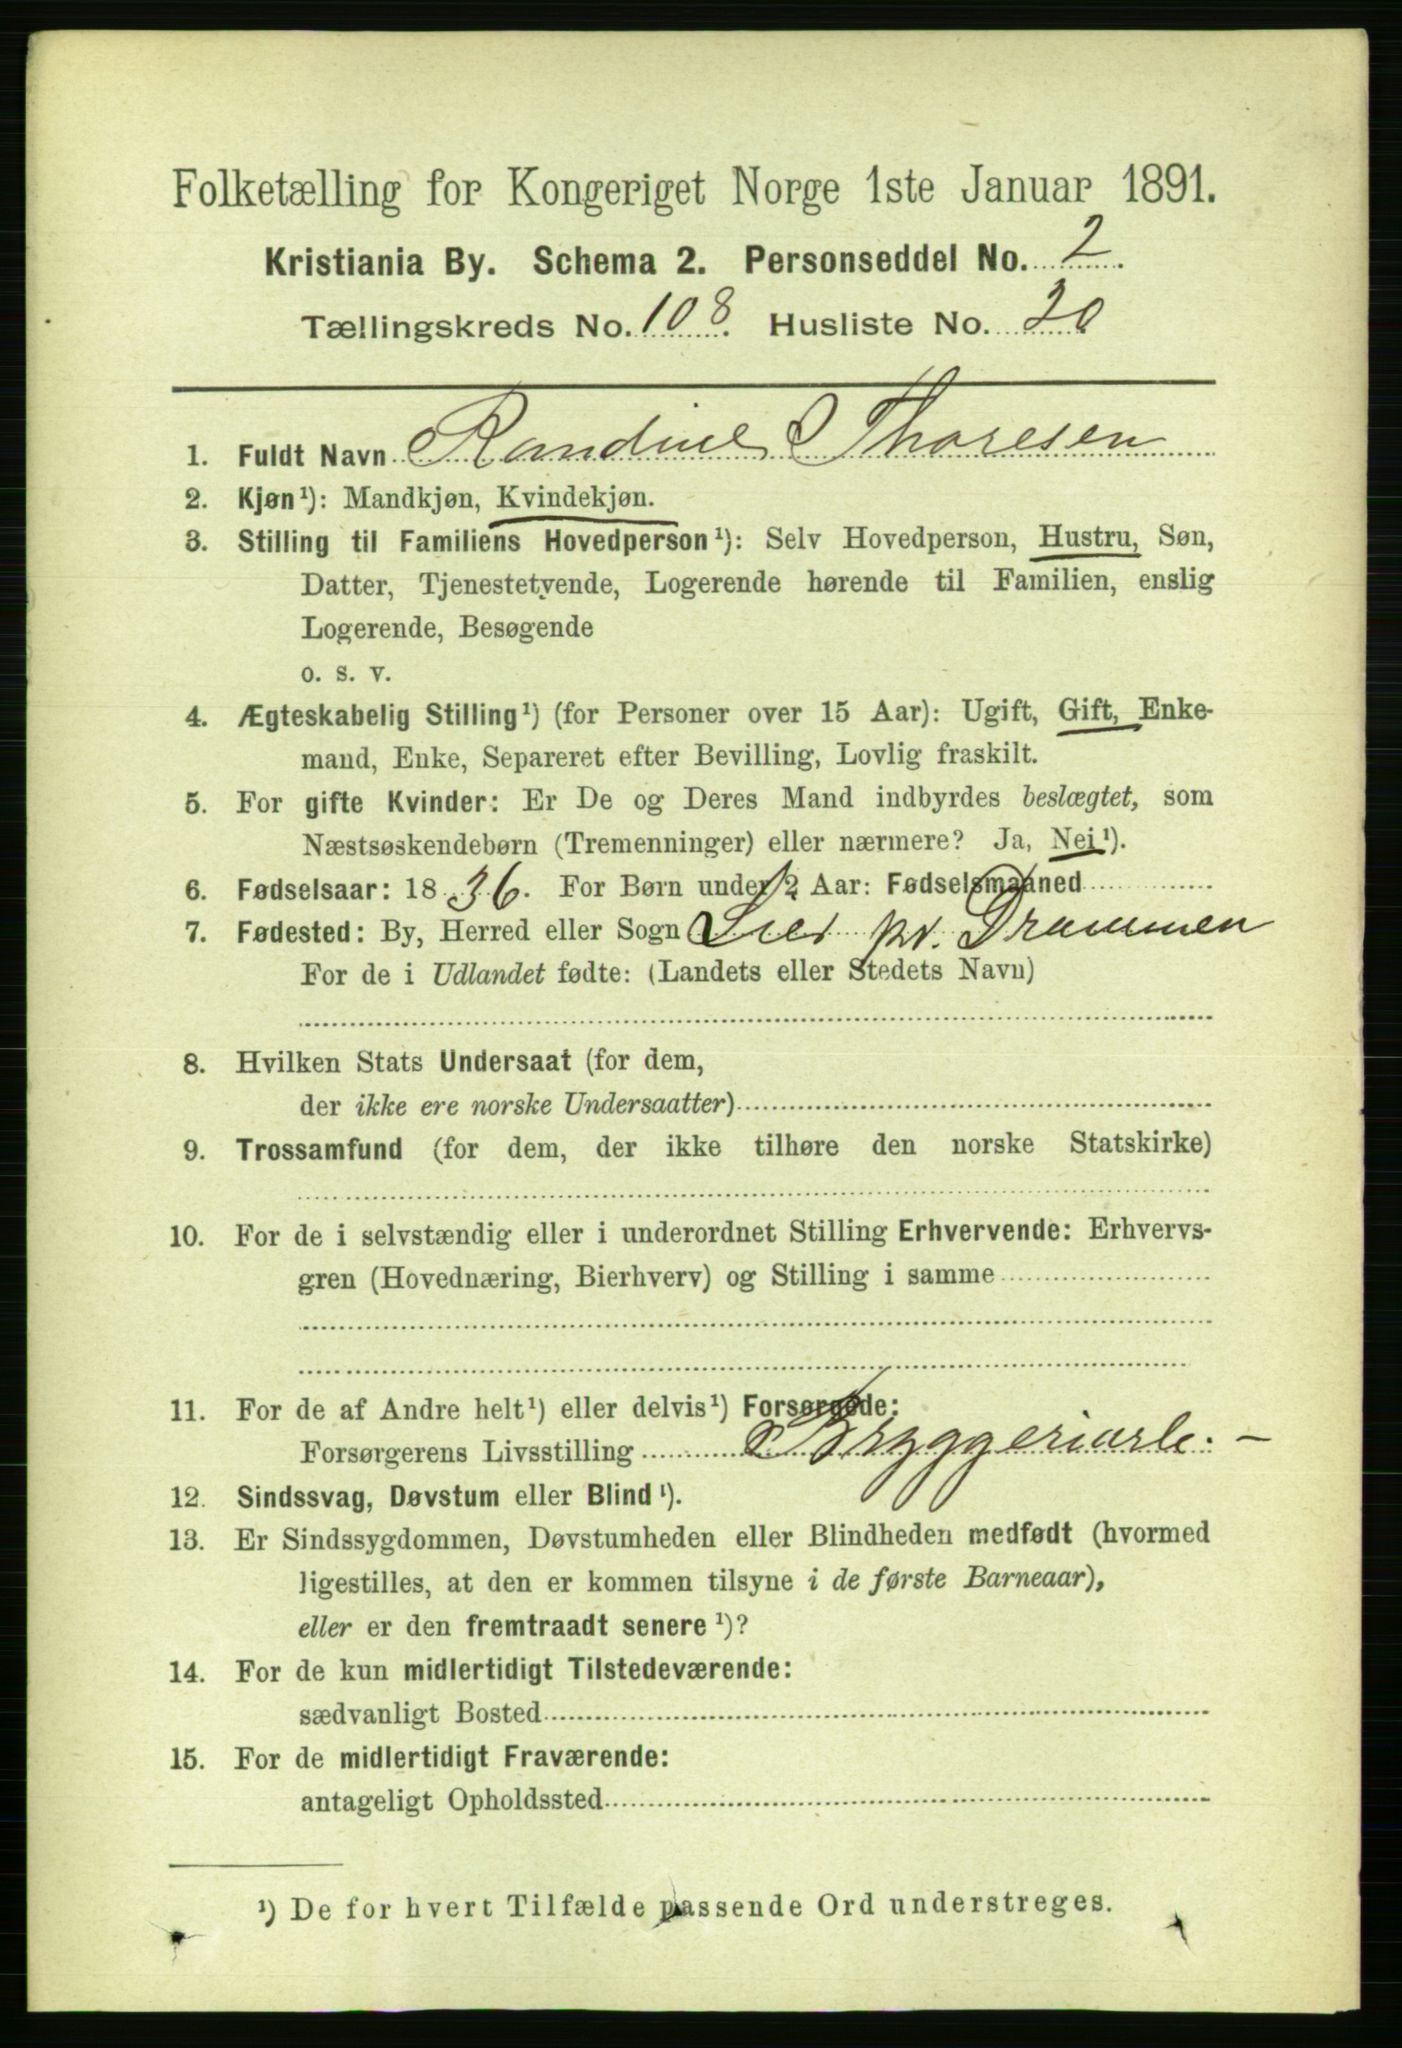 Folketælling for Kongeriget Norge 1ste Januar 1891.
Kristiania By. Schema 2. Personseddel No. 2.
Tællingskreds No. 108. Husliste No. 20
1. Fuldt Navn Randine Thoresen
2. Kjøn¹): Mandkjøn, Kvindekjøn.
3. Stilling til Familiens Hovedperson¹): Selv Hovedperson, Hustru, Søn,
Datter, Tjenestetyende, Logerende hørende til Familien, enslig
Logerende, Besøgende
o. s. v.
4. Ægteskabelig Stilling¹) (for Personer over 15 Aar): Ugift, Gift, Enke-
mand, Enke, Separeret efter Bevilling, Lovlig fraskilt.
5. For gifte Kvinder: Er De og Deres Mand indbyrdes beslægtet, som
Næstsøskendebørn (Tremenninger) eller nærmere? Ja, Nei¹).
6. Fødselsaar: 1836. For Børn under 2 Aar: Fødselsmaaned
7. Fødested: By, Herred eller Sogn Lier pr. Drammen
For de i Udlandet fødte: (Landets eller Stedets Navn)
8. Hvilken Stats Undersaat (for dem,
der ikke ere norske Undersaatter)
9. Trossamfund (for dem, der ikke tilhøre den norske Statskirke)
10. For de i selvstændig eller i underordnet Stilling Erhvervende: Erhvervs-
gren (Hovednæring, Bierhverv) og Stilling i samme
11. For de af Andre helt¹) eller delvis¹) Forsørgede:
Forsørgerens Livsstilling Bryggeriarb. —
12. Sindssvag, Døvstum eller Blind¹).
13. Er Sindssygdommen, Døvstumheden eller Blindheden medfødt (hvormed
ligestilles, at den er kommen tilsyne i de første Barneaar),
eller er den fremtraadt senere¹)?
14. For de kun midlertidigt Tilstedeværende:
sædvanligt Bosted
15. For de midlertidigt Fraværende:
antageligt Opholdssted
¹) De for hvert Tilfælde passende Ord understreges.